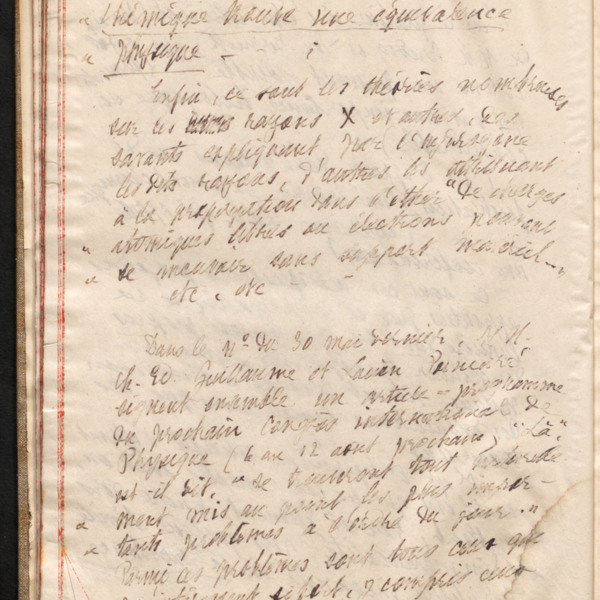 " chimique trouve une équivalence
" physique -
Enfin, ce sont les théories nombreuses
sur les rayons X et autres, des
savants expliquant par l'hypergène
les dits rayons, d'autres les attribuant
à la propagation dans l'éther "de charges
" atomiques libres ou électrons pouvant
" se mouvoir sans support matériel..."
etc, etc
Dans le n° du 30 mai dernier, M.M.
Ch. Ed. Guillaume et Lucien Poincaré
signent ensemble un article-programme
du prochain Congrès international de
Physique (6 au 12 août prochain) "Là",
est-il dit "se trouveront tout naturelle-
" ment mis au point les plus impor-
" tants problèmes à l'ordre du jour."
Parmi ces problèmes sont tous ceux que
y compris ceux